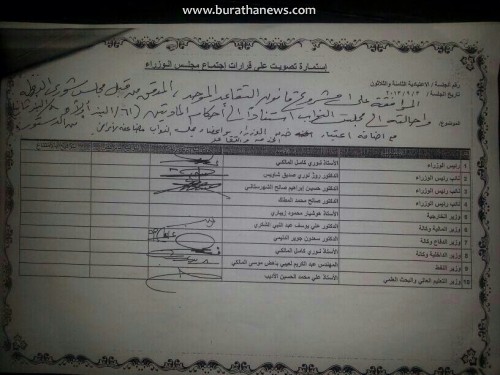 www.burathanews.com
إستمارة تصويت على قرارات إجتماع مجلس الوزراء
رقم الجلسة / الاعتيادية الثامنة والثلاثون
تاريخ الجلسة /
الموضوع:
الموافقة على مشروع قانون التقاعد الموحد، المدقق من قبل مجلس شورى الدولة
واحالته الى مجلس النواب استناداً الى أحكام المادتين (٦١/ البند أولاً
من الدستور
١ رئيس الوزراء الأستاذ نوري كامل المالكي
٢ نائب رئيس الوزراء الدكتور روز نوري صديق شاويس
٣ نائب رئيس الوزراء الدكتور حسين إبراهيم صالح الشهرستاني
٤ نائب رئيس الوزراء الدكتور صالح محمد المطلك
٥ وزير الخارجية الأستاذ هوشيار محمود زيباري
٦ وزير المالية وكالة الدكتور علي يوسف عبد النبي الشكري
٧ وزير الدفاع وكالة الدكتور سعدون جوير الدليمي
٨ وزير الداخلية وكالة الأستاذ نوري كامل المالكي
٩ وزير النفط المهندس عبد الكريم لعيبي باهض موسى المالكي
١٠ وزير التعليم العالي والبحث العلمي الأستاذ علي محمد الحسين الأديب